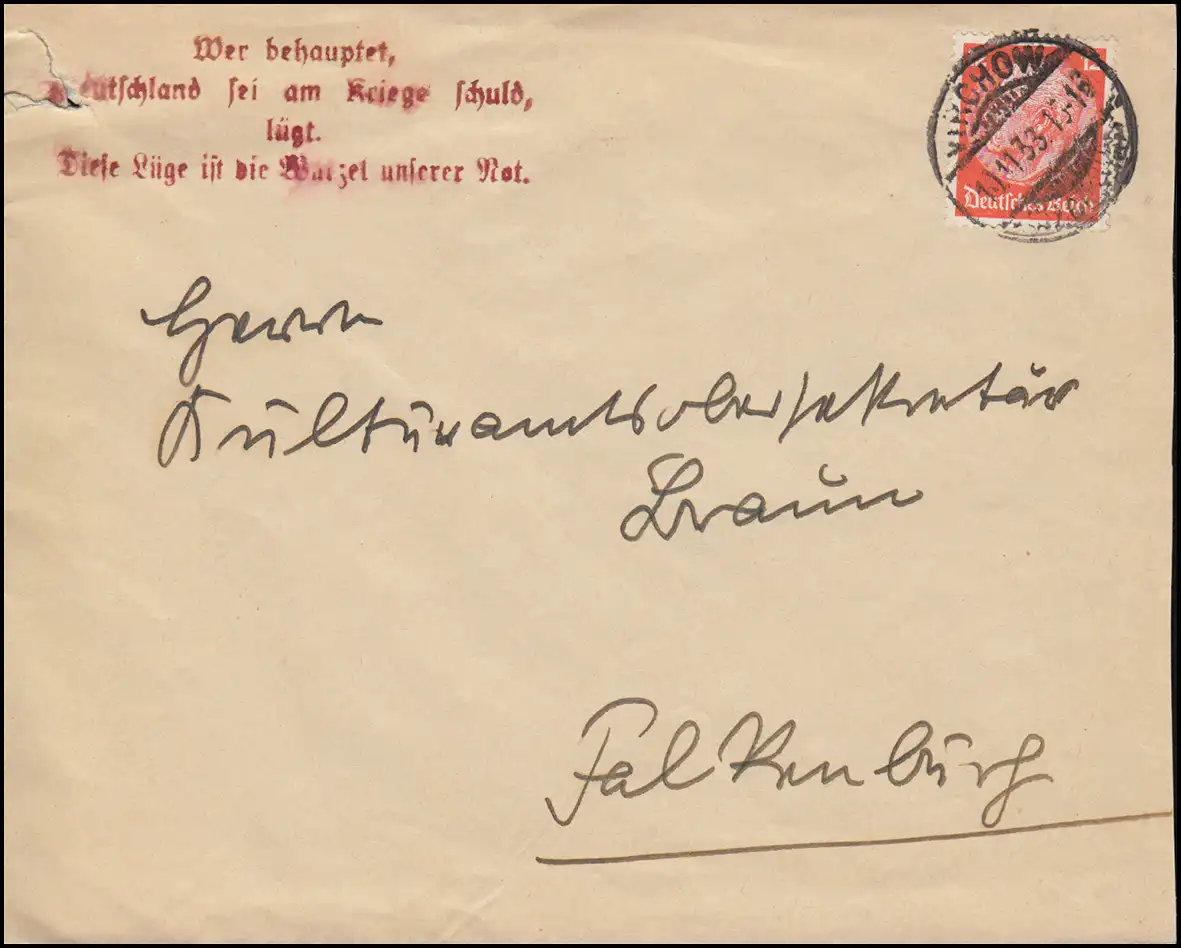 Wer behauptet,
Deutschland sei am Kriege schuld,
lügt.
Diese Lüge ist die Wurzel unserer Not.
12
VIRCHOW
11.11.33.
Deutsches Reich
Herrn
Kulturamtsobersekretär
Braun
Falkenburg